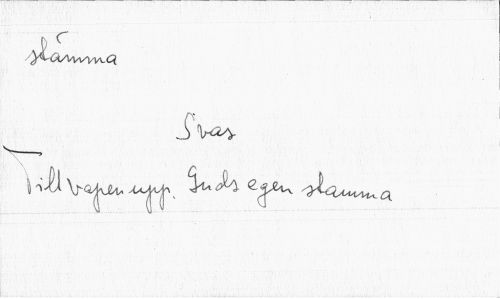 stämma
Svas
Till vapen upp. Guds egen stamma